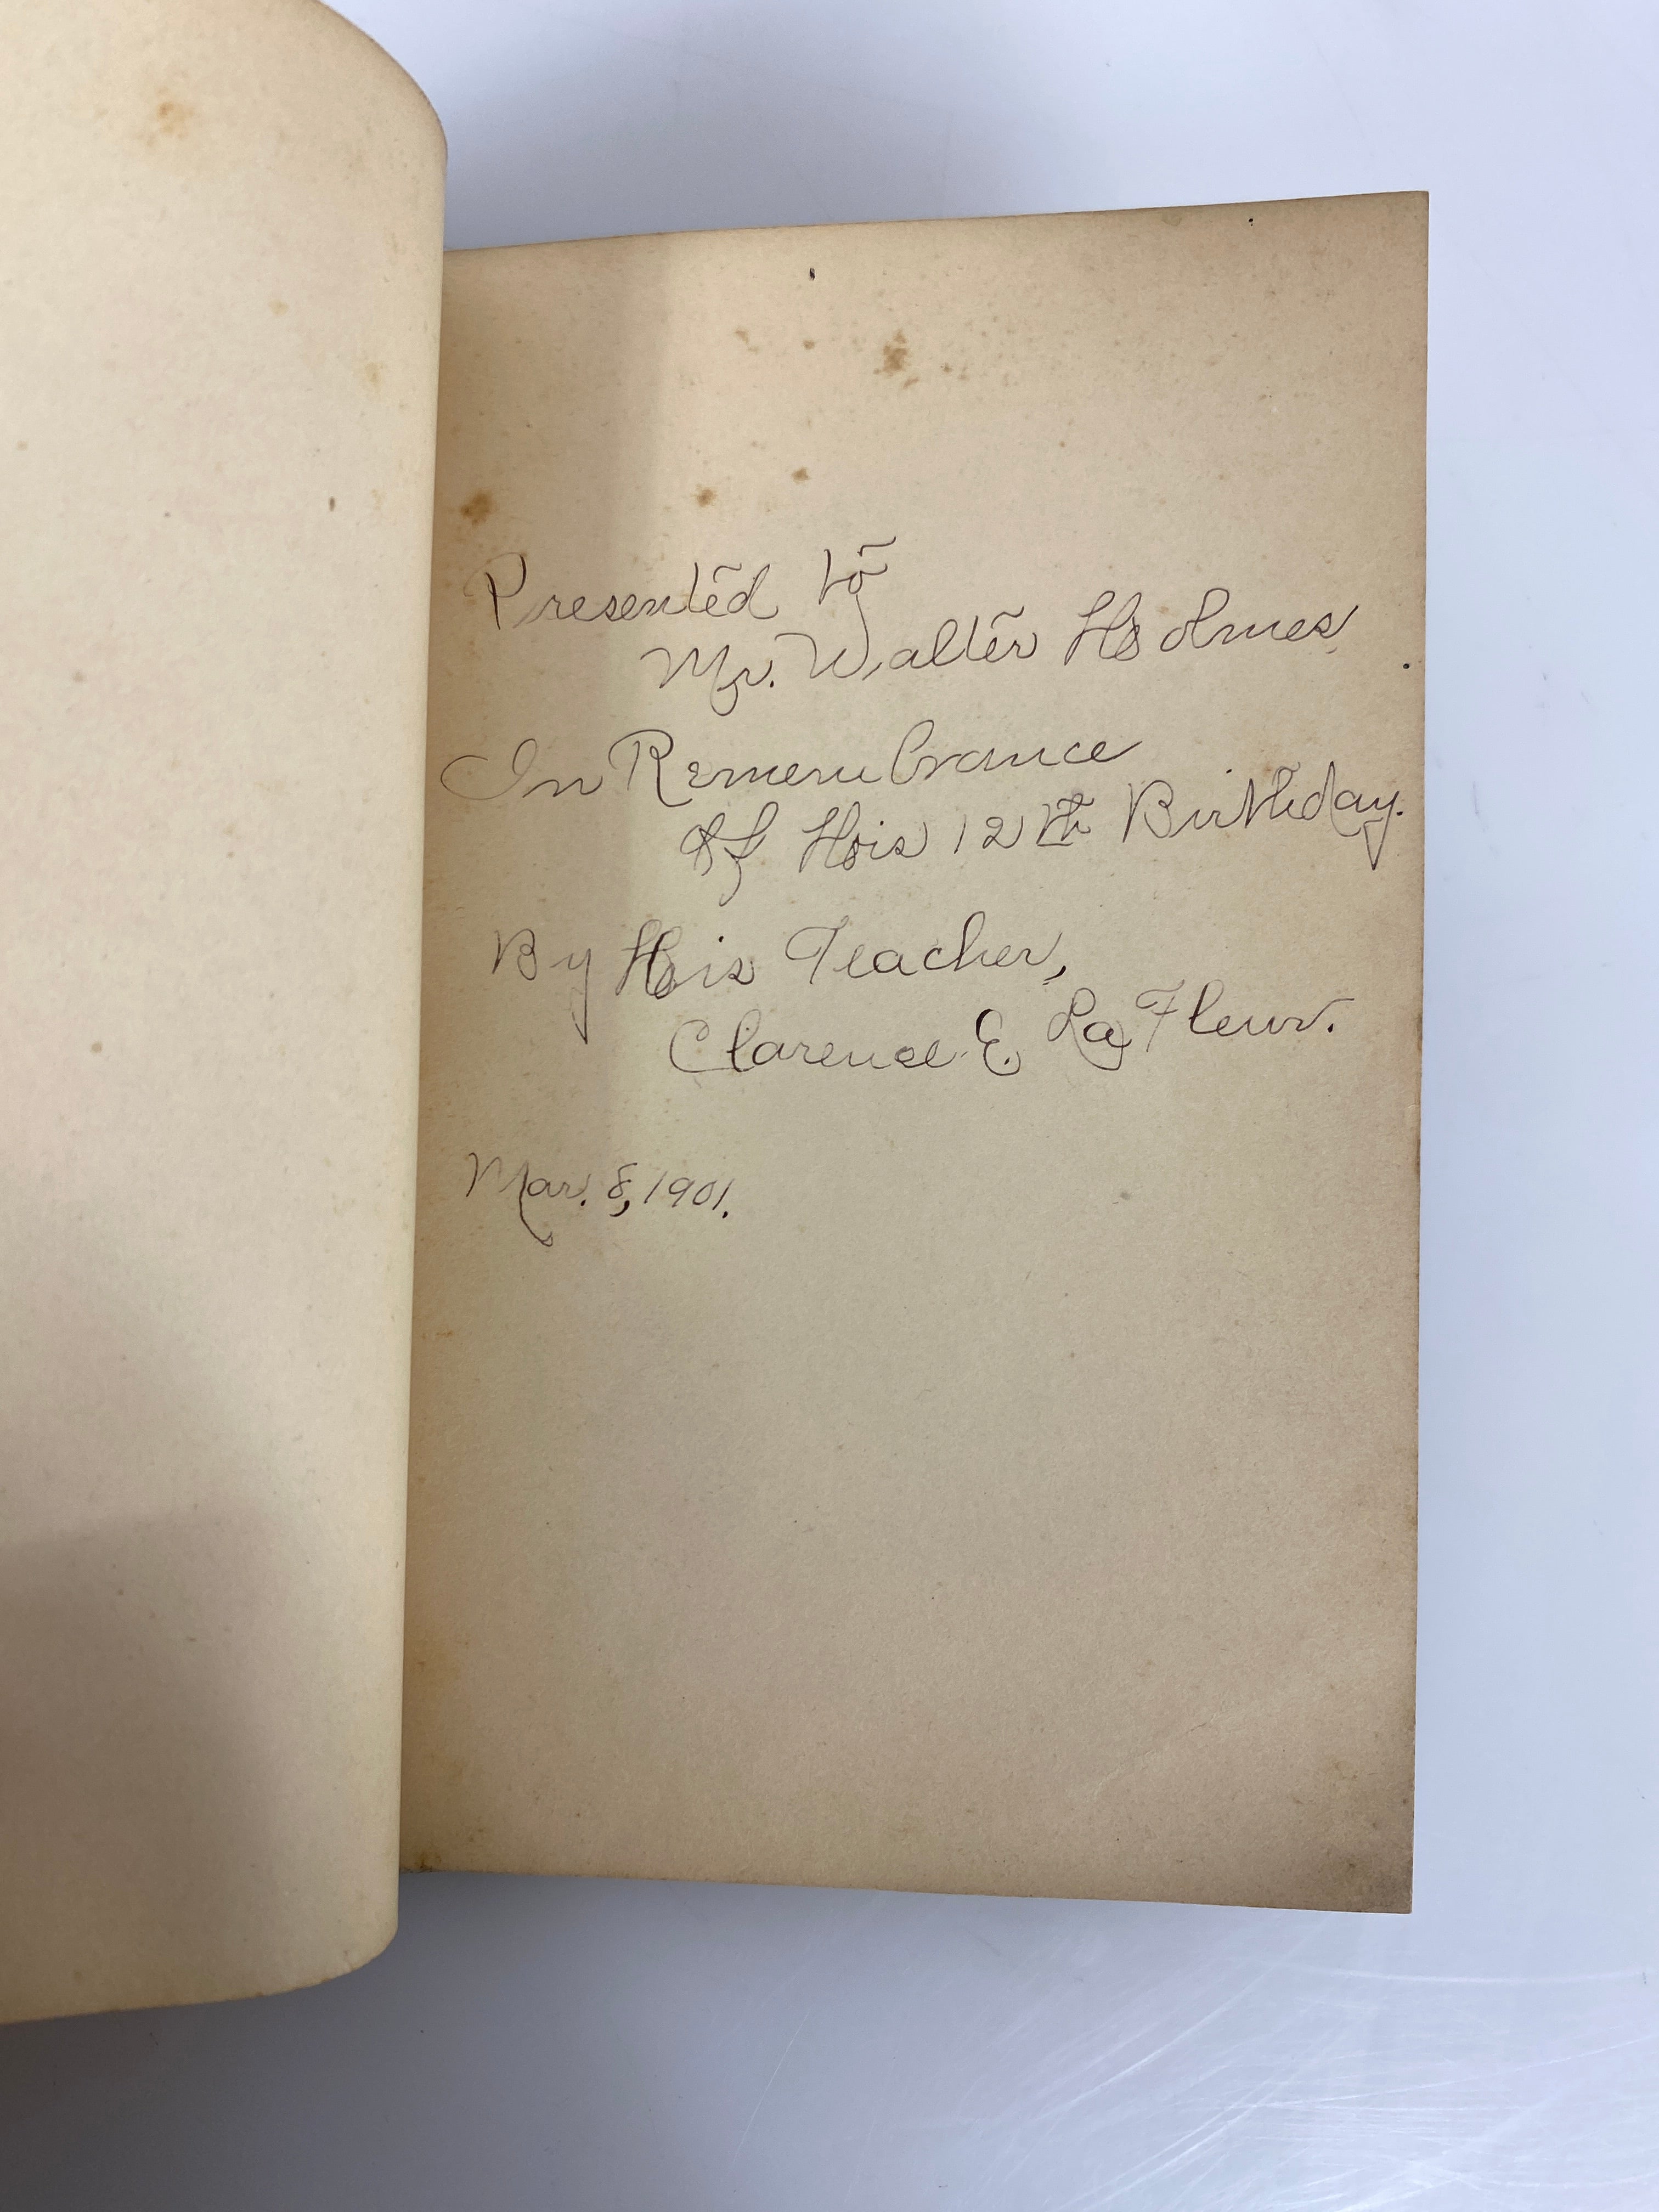 Presented to
Mr. Walter Holmes.
In Remembrance
Of His 12th Birthday.
By His Teacher,
Clarence E. LaFleur.
Mar. 8, 1901.